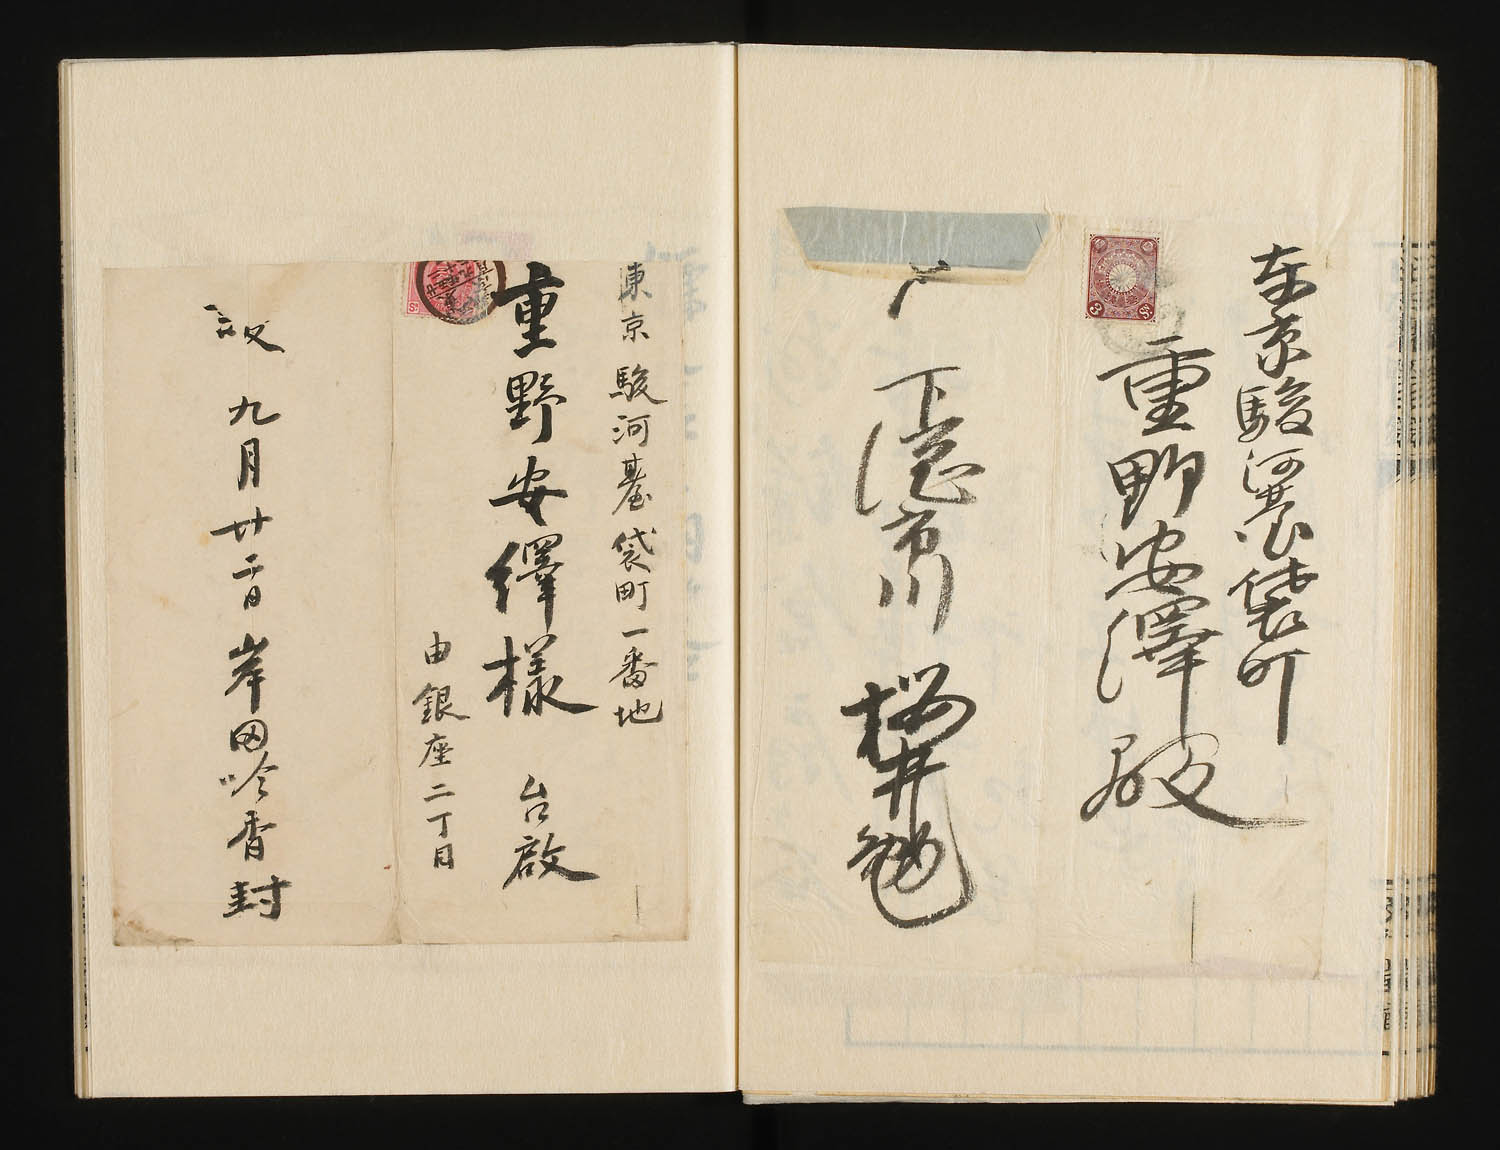 東京駿河臺袋町
重野安繹殿
下総市川
桜井勉
東京駿河臺袋町一番地
重野安繹様 台啟
由銀座二丁目
九月廿二日 岸田吟香封